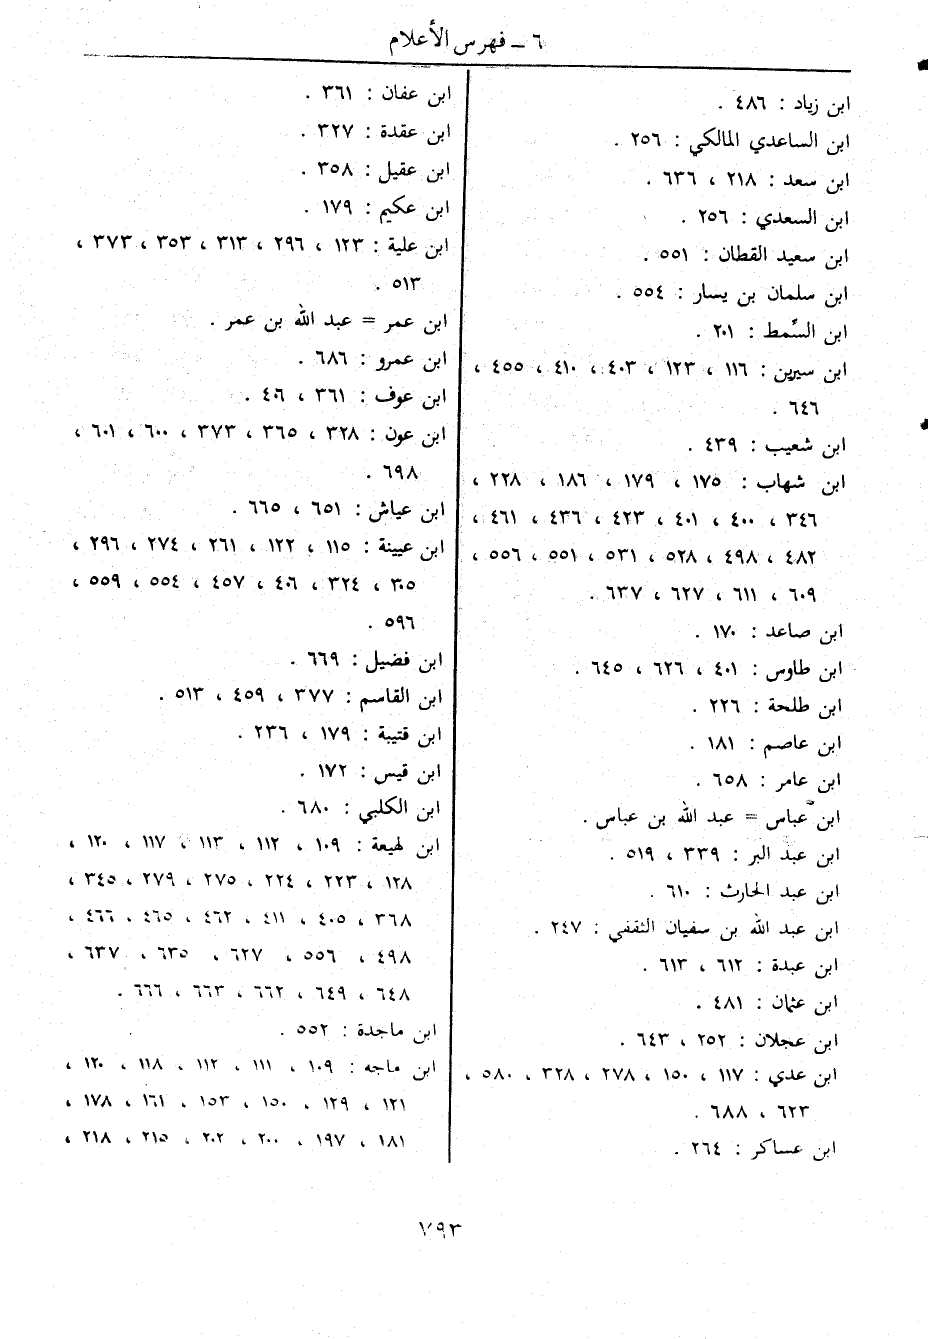 ٦ ــ فهرس الأعلام
ابن زياد : ٤٨٦ .
ابن الساعدي المالكي : ٢٥٦ .
ابن سعد : ٢١٨ ، ٦٣٦ .
ابن السعدي : ٢٥٦ .
ابن سعيد القطان : ٥٥١ .
ابن سلمان بن يسار : ٥٥٤ .
ابن السِّمط : ٢٠١ .
ابن سيرين : ١١٦ ، ١٢٣ ، ٤٠٣ ، ٤١٠ ، ٤٥٥ ،
٦٤٦ .
ابن شعيب : ٤٣٩ .
ابن شهاب : ١٧٥ ، ١٧٩ ، ١٨٦ ، ٢٢٨ ،
٣٤٦ ، ٤٠٠ ، ٤٠١ ، ٤٢٣ ، ٤٣٦ ، ٤٦١ ،
٤٨٢ ، ٤٩٨ ، ٥٢٨ ، ٥٣١ ، ٥٥١ ، ٥٥٦ ،
٦٠٩ ، ٦١١ ، ٦٢٧ ، ٦٣٧ .
ابن صاعد : ١٧٠ .
ابن طاوس : ٤٠١ ، ٦٢٦ ، ٦٤٥ .
ابن طلحة : ٢٢٦ .
ابن عاصم : ١٨١ .
ابن عامر : ٦٥٨ .
ابن عباس = عبد الله بن عباس .
ابن عبد البر : ٣٣٩ ، ٥١٩ .
ابن عبد الحارث : ٦١٠ .
ابن عبد الله بن سفيان الثقفي : ٢٤٧ .
ابن عبدة : ٦١٢ ، ٦١٣ .
ابن عثمان : ٤٨١ .
ابن عجلان : ٢٥٢ ، ٦٤٣ .
ابن عدي : ١١٧ ، ١٥٠ ، ٢٧٨ ، ٣٢٨ ، ٥٨٠ ،
٦٢٣ ، ٦٨٨ .
ابن عساكر : ٢٦٤ .
ابن عفان : ٣٦١ .
ابن عقدة : ٣٢٧ .
ابن عقيل : ٣٥٨ .
ابن عكيم : ١٧٩ .
ابن علية : ١٢٣ ، ٢٩٦ ، ٣١٣ ، ٣٥٣ ، ٣٧٣ ،
٥١٣ .
ابن عمر = عبد الله بن عمر .
ابن عمرو : ٦٨٦ .
ابن عوف : ٣٦١ ، ٤٠٦ .
ابن عون : ٣٢٨ ، ٣٦٥ ، ٣٧٣ ، ٦٠٠ ، ٦٠١ ،
٦٩٨ .
ابن عياش : ٦٥١ ، ٦٦٥ .
ابن عيينة : ١١٥ ، ١٢٢ ، ٢٦١ ، ٢٧٤ ، ٢٩٦ ،
٣٠٥ ، ٣٢٤ ، ٤٠٦ ، ٤٥٧ ، ٥٥٤ ، ٥٥٩ ،
٥٩٦ .
ابن فضيل : ٦٦٩ .
ابن القاسم : ٣٧٧ ، ٤٥٩ ، ٥١٣ .
ابن قتيبة : ١٧٩ ، ٢٣٦ .
ابن قيس : ١٧٢ .
ابن الكلبي : ٦٨٠ .
ابن لهيعة : ١٠٩ ، ١١٢ ، ١١٣ ، ١١٧ ، ١٢٠ ،
١٢٨ ، ٢٢٣ ، ٢٢٤ ، ٢٧٥ ، ٢٧٩ ، ٣٤٥ ،
٣٦٨ ، ٤٠٥ ، ٤١١ ، ٤٦٢ ، ٤٦٥ ، ٤٦٦ ،
٤٩٨ ، ٥٥٦ ، ٦٢٧ ، ٦٣٥ ، ٦٣٧ ،
٦٤٨ ، ٦٤٩ ، ٦٦٢ ، ٦٦٣ ، ٦٦٦ .
ابن ماجدة : ٥٥٢ .
ابن ماجه : ١٠٩ ، ١١١ ، ١١٢ ، ١١٨ ، ١٢٠ ،
١٢١ ، ١٢٩ ، ١٥٠ ، ١٥٣ ، ١٦١ ، ١٧٨ ،
١٨١ ، ١٩٧ ، ٢٠٠ ، ٢٠٢ ، ٢١٥ ، ٢١٨ ،
٧٩٣